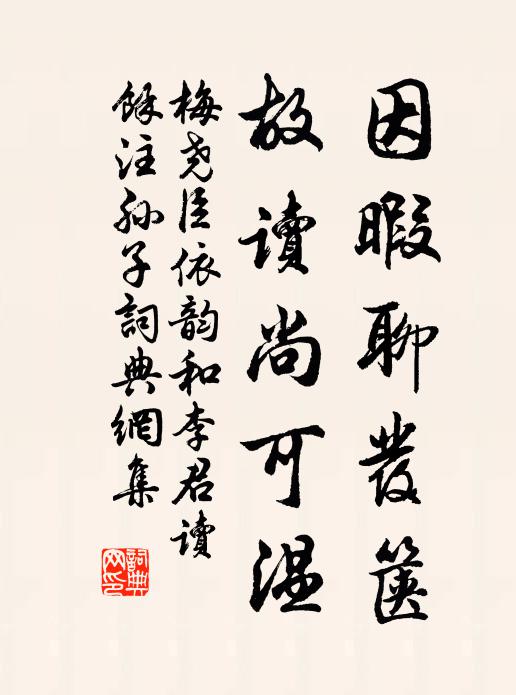 因暇聊發篋
故讀尚可溫
梅堯臣依韵和李君讀
餘注孙子詞典網集
詞典网印